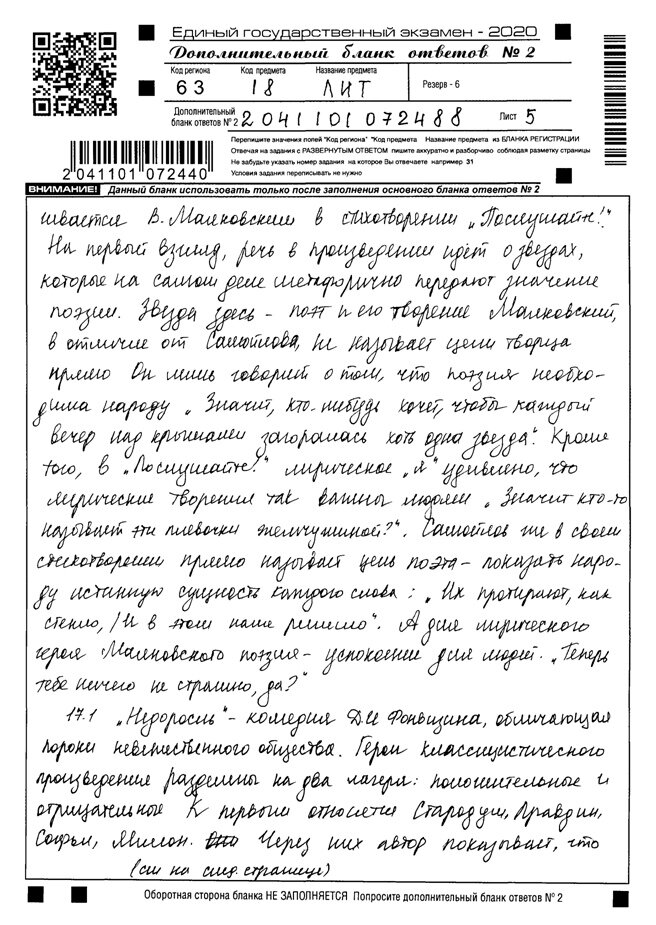 Единый государственный экзамен - 2020
Дополнительный бланк ответов № 2
Код региона Код предмета Название предмета
63 18 ЛИТ Резерв - 6
Дополнительный бланк ответов № 2 2041101072488 Лист 5
Перепишите значения полей "Код региона" "Код предмета Название предмета из БЛАНКА РЕГИСТРАЦИИ
Отвечая на задания с РАЗВЕРНУТЫМ ОТВЕТОМ пишите аккуратно и разборчиво соблюдая разметку страницы
Не забудьте указать номер задания на которое Вы отвечаете например 31
Условия задания переписывать не нужно
2 041101 072440
ВНИМАНИЕ! Данный бланк использовать только после заполнения основного бланка ответов № 2
шивается В. Маяковский в стихотворении „Послушайте!"
На первый взгляд, речь в произведении идёт о звездах,
которые на самом деле метафорично передают значение
поэзии. Звезда здесь - поэт и его творение Маяковский,
в отличие от Самойлова, не называет цели творца
прямо Он лишь говорит о том, что поэзия необхо-
дима народу „Значит, кто-нибудь хочет, чтобы каждый
вечер над крышами загоралась хоть одна звезда". Кроме
того, в „Послушайте!" лирическое „я" удивлено, что
лирические творения так важны людям „Значит кто-то
называет эти плевочки жемчужиной?". Самойлов же в своем
стихотворении прямо называет цель поэта - показать наро-
ду истинную сущность каждого слова: „Их протирают, как
стекло, / И в этом наше ремесло". А для лирического
героя Маяковского поэзия - успокоение для людей. „Теперь
тебе ничего не страшно, да?"
17.1 „Недоросль" - комедия Д.И Фонвизина, обличающая
пороки невежественного общества. Герои классицистического
произведение разделены на два лагеря: положительные и
отрицательные К первым относятся Стародум, Правдин,
Софья, Милон. Через них автор показывает, что
(см на след. странице)
Оборотная сторона бланка НЕ ЗАПОЛНЯЕТСЯ Попросите дополнительный бланк ответов № 2